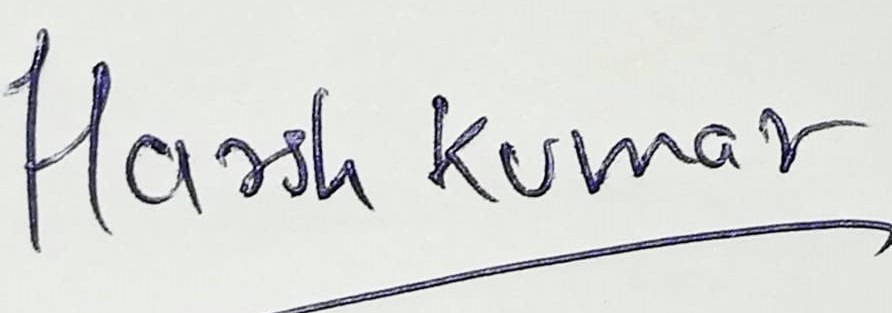 Harsh Kumar